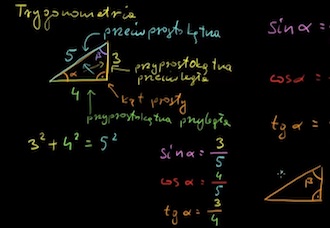 Trygonometria
przeciwprostokątna
5
β
3
α
4
przyprostokątna
przeciwległa
kąt prosty
przyprostokątna przyległa
3² + 4² = 5²
sin α = 3/5
cos α = 4/5
tg α = 3/4
sin α =
cos α =
tg α =
β